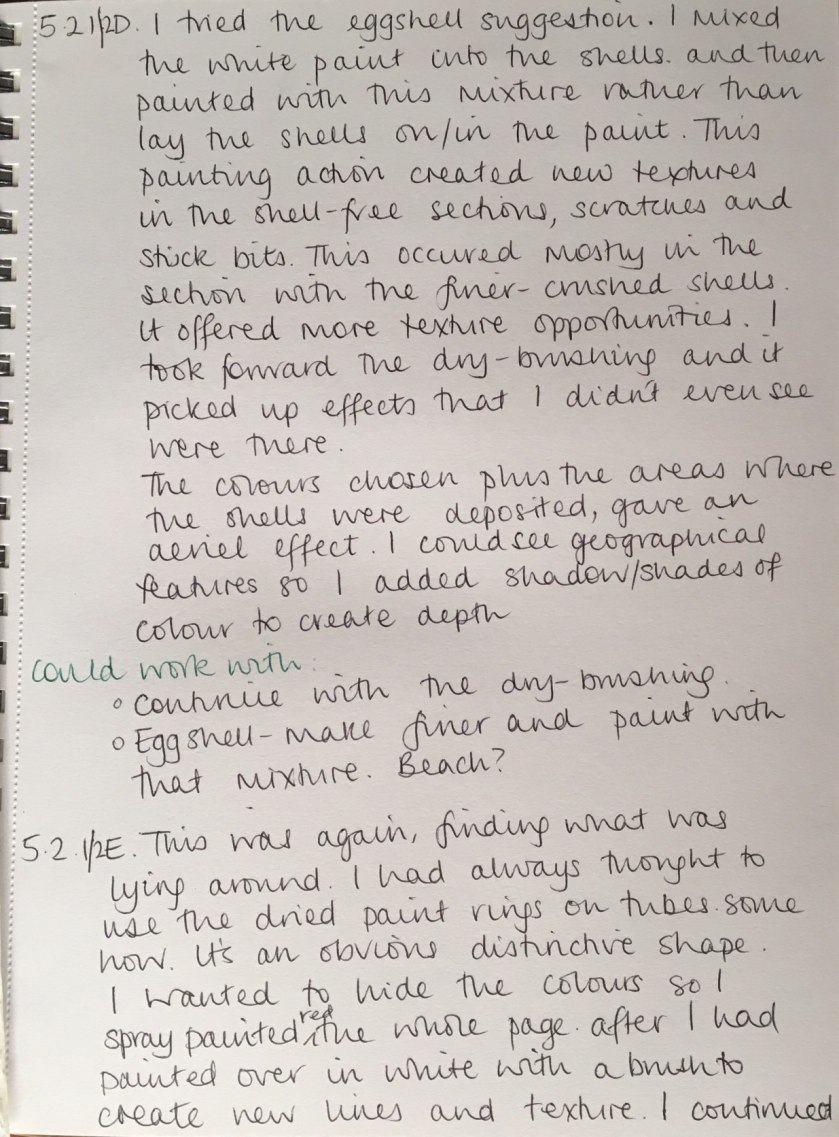 5.2 1/2D. I tried the eggshell suggestion. I mixed
the white paint into the shells. and then
painted with this mixture rather than
lay the shells on/in the paint. This
painting action created new textures
in the shell-free sections, scratches and
stuck bits. This occured mostly in the
section with the finer-crushed shells.
It offered more texture opportunities. I
took forward the dry-brushing and it
picked up effects that I didn't even see
were there.
The colours chosen plus the areas where
the shells were deposited, gave an
aeriel effect. I could see geographical
features so I added shadow/shades of
colour to create depth
could work with:
o continue with the dry-brushing.
o Eggshell-make finer and paint with
that mixture. Beach?
5.2.1/2E. This was again, finding what was
lying around. I had always thought to
use the dried paint rings on tubes. some
how. It's an obvious distinctive shape.
I wanted to hide the colours so I
spray painted red the whole page. after I had
painted over in white with a brush to
create new lines and texture. I continued